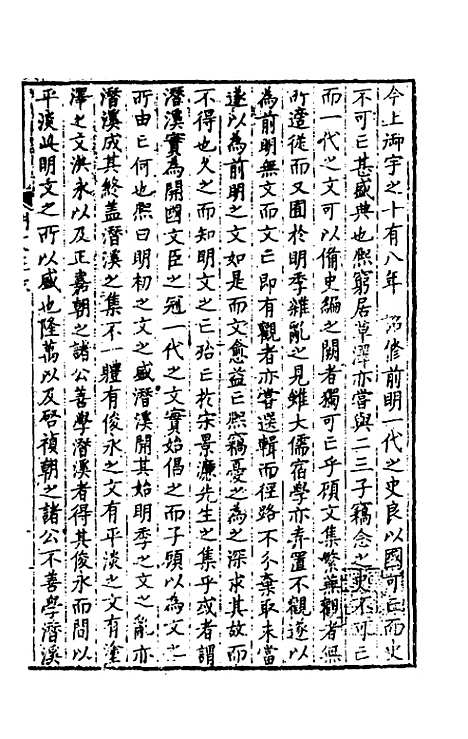 今上御宇之十有八年 詔修前明一代之史良以國可亡而史
不可亡甚盛典也熙窮居草澤亦嘗與二三子竊念之史不可亡
而一代之文可以備史編之闕者獨可亡乎碩文集繁蕪觀者無
所適從而又囿於明季雜亂之見雖大儒宿學亦弃置不觀遂以
為前明無文而文亡即有觀者亦嘗選輯而徑路不分棄取未當
遂以為前明之文如是而文愈益亡熙竊憂之為之深求其故而
不得也久之而知明文之亡殆亡於宋景濂先生之集乎或者謂
潛溪實為開國文臣之冠一代之文實始倡之而子顧以為文之
所由亡何也熙曰明初之文之盛潛溪開其始明季之文之亂亦
潛溪成其終盖潛溪之集不一體有俊永之文有平淡之文有塗
澤之文洪永以及正嘉朝之諸公善學潛溪者得其俊永而間以
平淡此明文之所以盛也隆萬以及啓禎朝之諸公不善學潛溪